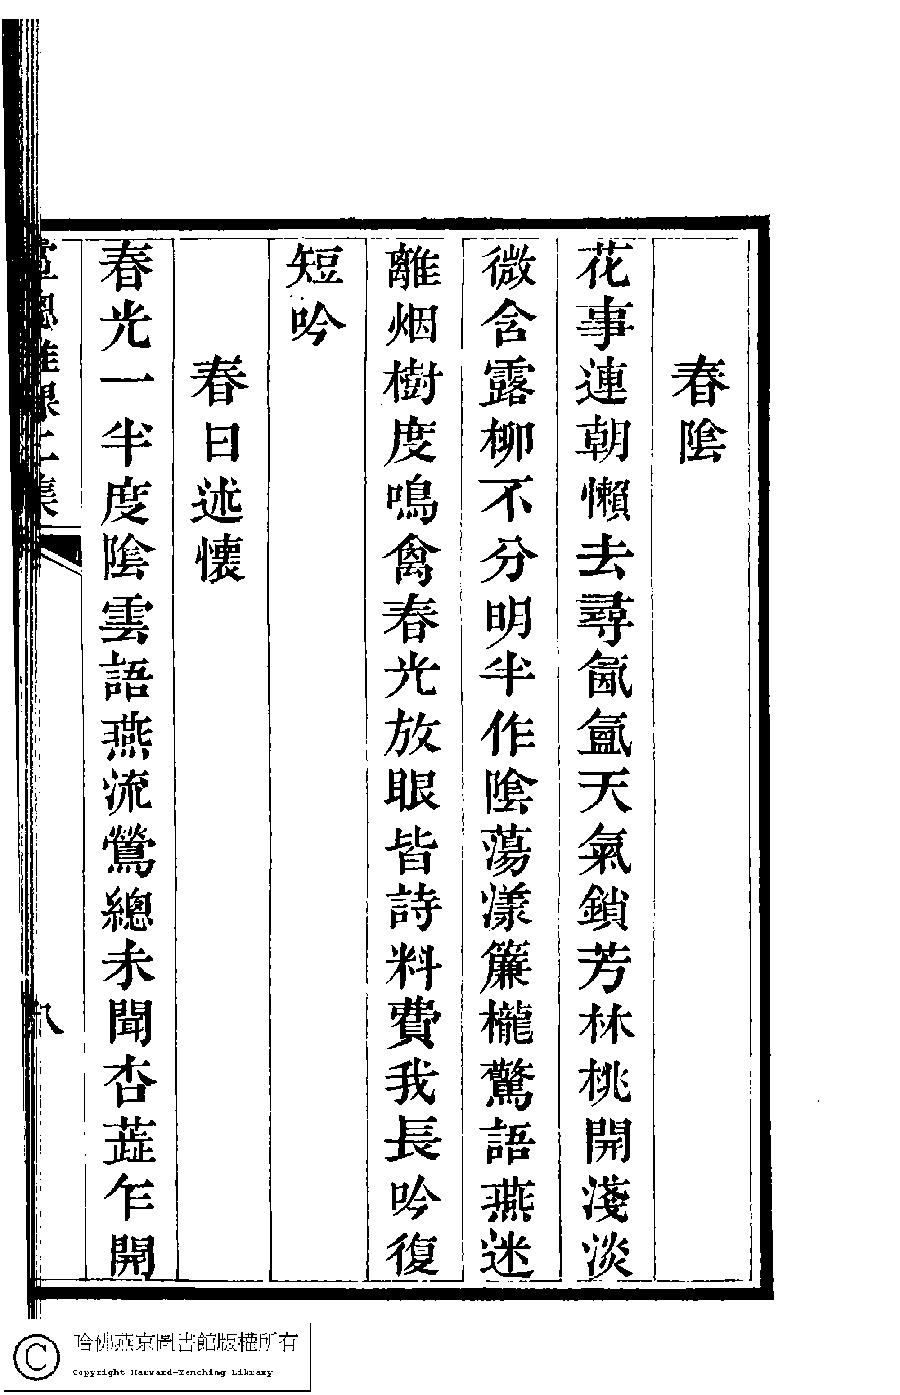 春陰
花事連朝懶去尋氤氳天氣鎖芳林桃開淺淡
微含露柳不分明半作陰蕩漾簾櫳驚語燕迷
離烟樹度鳴禽春光放眼皆詩料費我長吟復
短吟
春日述懷
春光一半度陰雲語燕流鶯總未聞杏蕋乍開
哈佛燕京圖書館版權所有
Copyright Harvard-Yenching Library